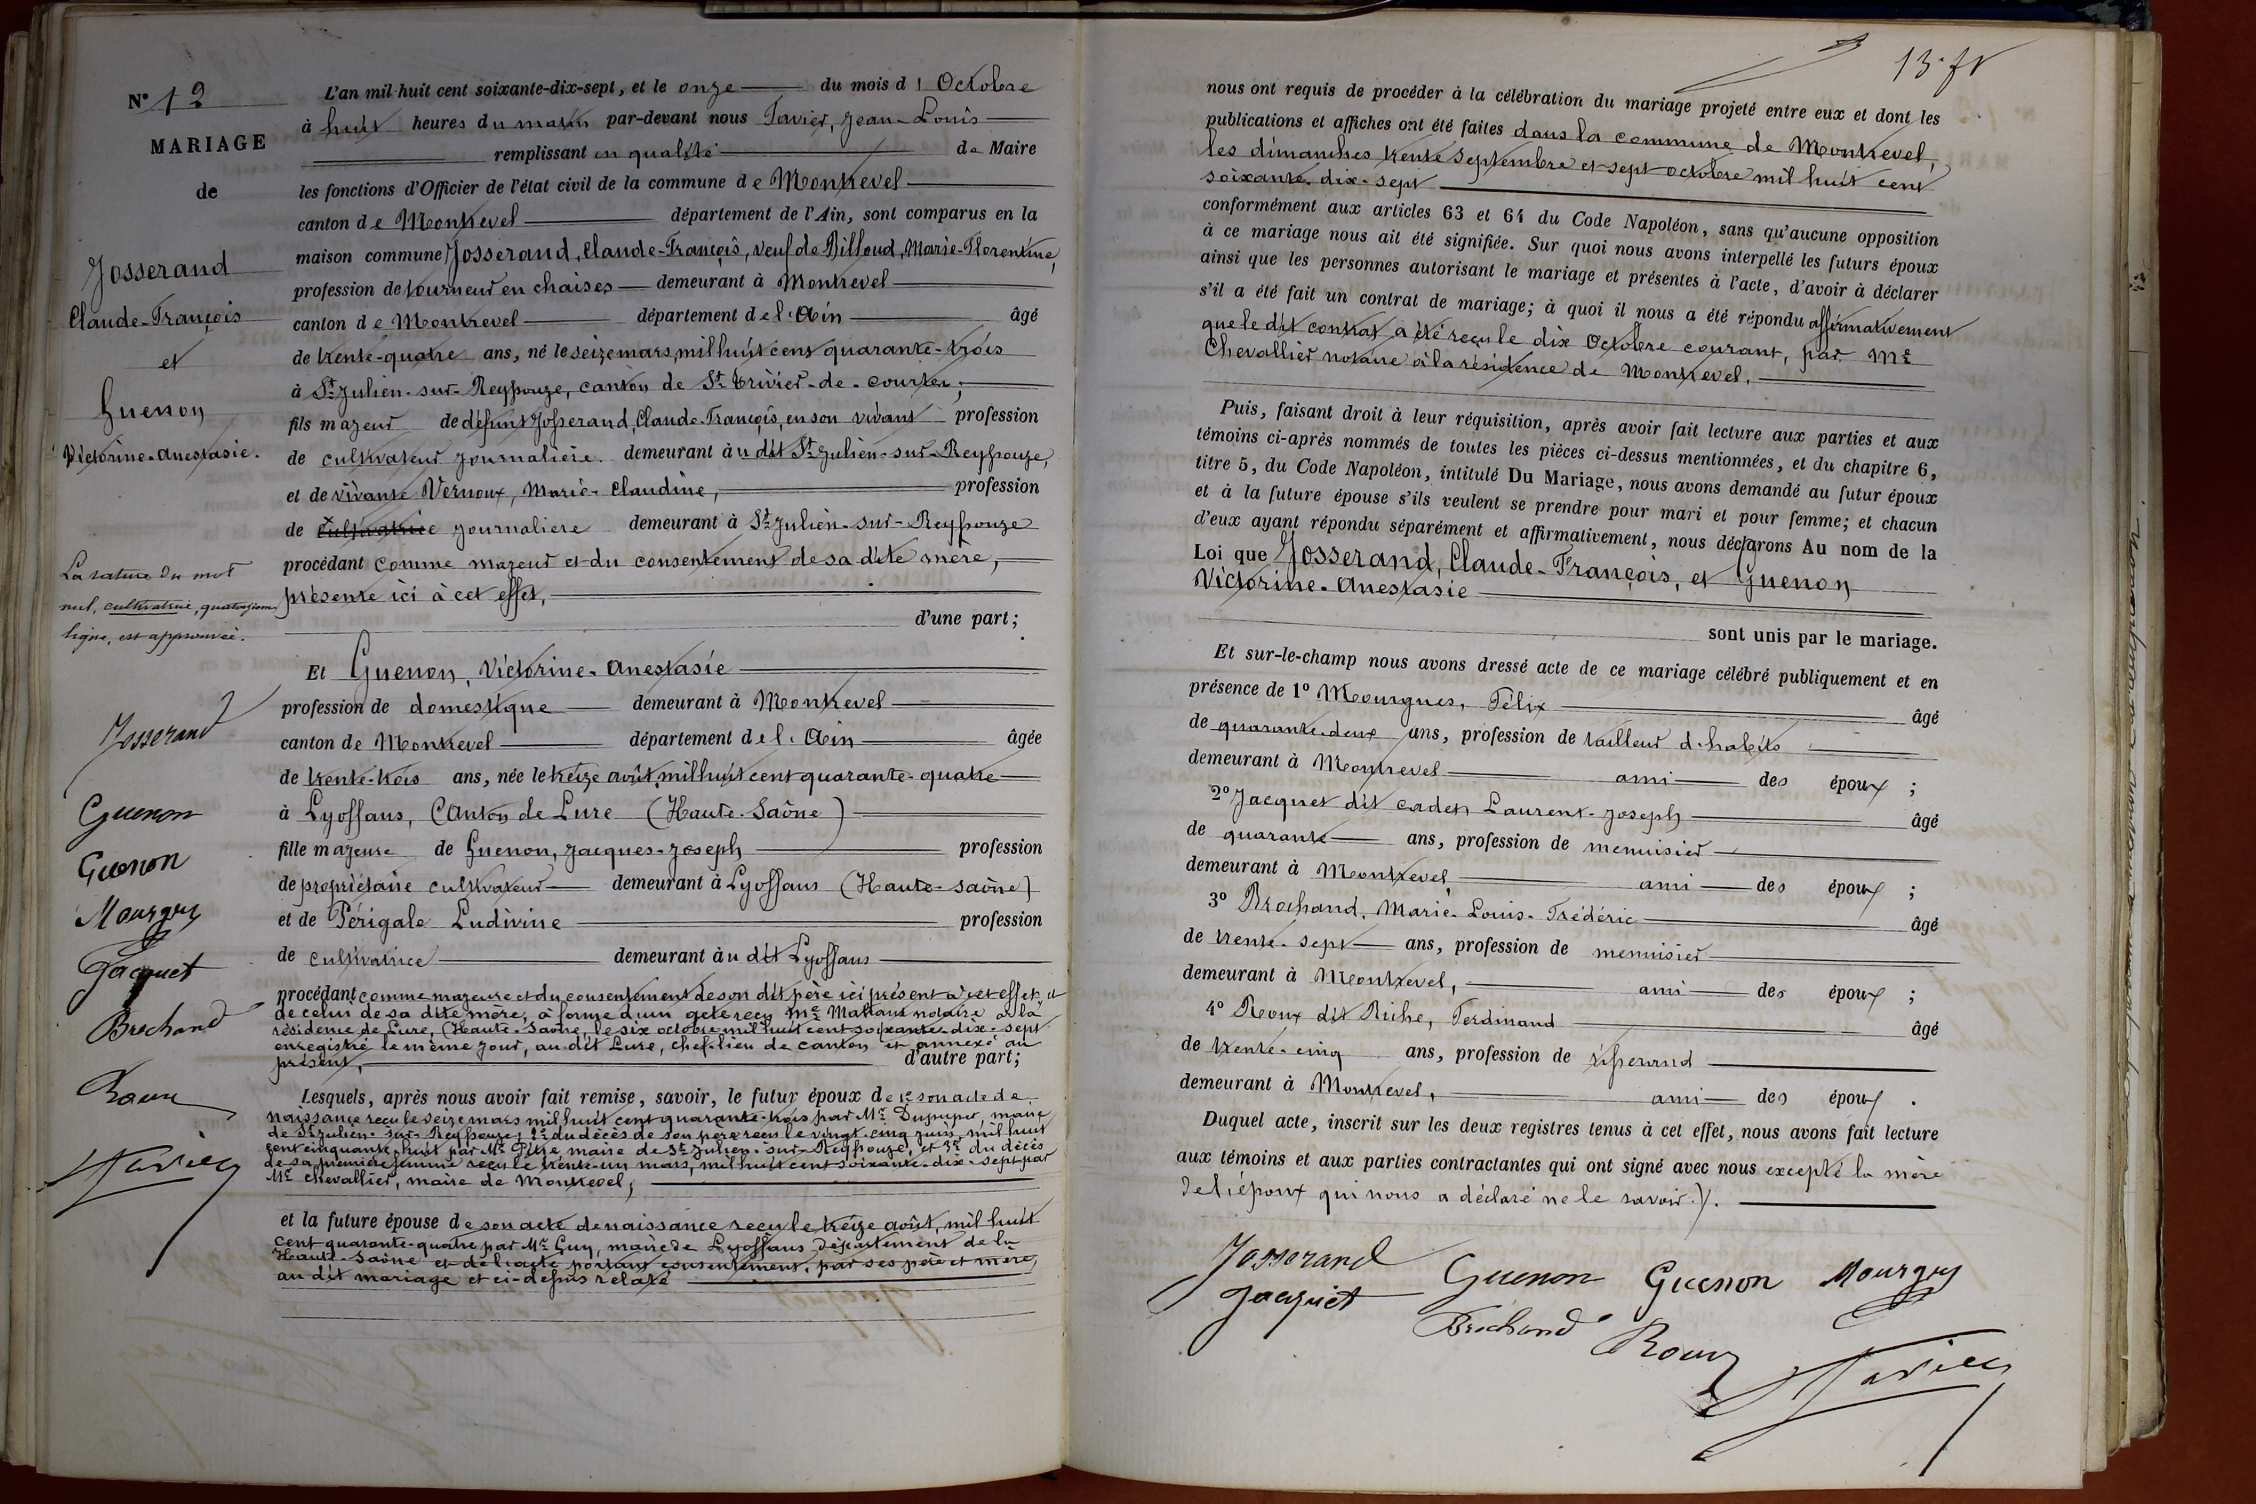 N° 12
MARIAGE
de
Josserand
Claude-François
et
Guenon
Victorine-Anestasie.
La rature du mot
nul, cultivatrice, quatorzième
ligne, est approuvée.
Josserand
Guenon
Guenon
Mourgues
Jacquet
Brochand
Roux
Tavier
L'an mil huit cent soixante-dix-sept, et le onze du mois d'Octobre
à huit heures du matin par-devant nous Tavier, Jean-Louis
remplissant en qualité de Maire
les fonctions d'Officier de l'état civil de la commune de Montrevel
canton de Montrevel département de l'Ain, sont comparus en la
maison commune Josserand, Claude-François, veuf de Billoud, Marie-Florentine,
profession de tourneur en chaises demeurant à Montrevel
canton de Montrevel département de l'Ain âgé
de trente-quatre ans, né le seize mars, mil huit cent quarante-trois
à St Julien-sur-Reyssouze, canton de St Trivier-de-Courtes,
fils majeur de défunt Josserand, Claude-François, en son vivant profession
de cultivateur journalière demeurant au dit St Julien-sur-Reyssouze,
et de vivante Vernoux, Marie-Claudine, profession
de cultivatrice journalière demeurant à St Julien-sur-Reyssouze
procédant comme majeur et du consentement de sa dite mère,
présente ici à cet effet,
d'une part;
Et Guenon, Victorine-Anestasie
profession de domestique demeurant à Montrevel
canton de Montrevel département de l'Ain âgée
de trente-trois ans, née le treize août, mil huit cent quarante-quatre
à Lyoffans, Canton de Lure (Haute-Saône)
fille majeure de Guenon, Jacques-Joseph profession
de propriétaire cultivateur demeurant à Lyoffans (Haute-Saône)
et de Périgale Ludivine profession
de cultivatrice demeurant au dit Lyoffans
procédant comme majeure et du consentement de son dit père ici présent à cet effet, et
de celui de sa dite mère, à forme d'un acte reçu Me notaire à la
résidence de Lure, (Haute-Saône, le six octobre mil huit cent soixante-dix-sept
enregistré le même jour, au dit Lure, chef-lieu de canton et annexé au
présent, d'autre part;
Lesquels, après nous avoir fait remise, savoir, le futur époux de 1° son acte de
naissance reçu le seize mars mil huit cent quarante-trois par Mr Dupupet, maire
de St Julien-sur-Reyssouze; 2° du décès de son père reçu le vingt-cinq juin mil huit
cent cinquante-huit par Mr maire de St Julien-sur-Reyssouze, et 3° du décès
de sa première femme reçu le trente-un mars, mil huit cent soixante-dix-sept par
Mr Chevallier, maire de Montrevel;
et la future épouse de son acte de naissance reçu le treize août, mil huit
cent quarante-quatre par Mr Guy, maire de Lyoffans département de la
Haute-Saône et de l'acte portant consentement, par ses père et mère,
au dit mariage et ci-dessus relaté
13.
nous ont requis de procéder à la célébration du mariage projeté entre eux et dont les
publications et affiches ont été faites dans la commune de Montrevel,
les dimanches trente septembre et sept octobre mil huit cent
soixante-dix-sept
conformément aux articles 63 et 64 du Code Napoléon, sans qu'aucune opposition
à ce mariage nous ait été signifiée. Sur quoi nous avons interpellé les futurs époux
ainsi que les personnes autorisant le mariage et présentes à l'acte, d'avoir à déclarer
s'il a été fait un contrat de mariage; à quoi il nous a été répondu affirmativement
que le dit contrat a été reçu le dix Octobre courant, par Me
Chevallier notaire à la résidence de Montrevel.
Puis, faisant droit à leur réquisition, après avoir fait lecture aux parties et aux
témoins ci-après nommés de toutes les pièces ci-dessus mentionnées, et du chapitre 6,
titre 5, du Code Napoléon, intitulé Du Mariage, nous avons demandé au futur époux
et à la future épouse s'ils veulent se prendre pour mari et pour femme; et chacun
d'eux ayant répondu séparément et affirmativement, nous déclarons Au nom de la
Loi que Josserand, Claude-François, et Guenon
Victorine-Anestasie
sont unis par le mariage.
Et sur-le-champ nous avons dressé acte de ce mariage célébré publiquement et en
présence de 1° Mourgues, Félix âgé
de quarante-deux ans, profession de tailleur d'habits
demeurant à Montrevel ami des époux ;
2° Jacquet dit cadet Laurent-Joseph âgé
de quarante ans, profession de menuisier
demeurant à Montrevel, ami des époux ;
3° Brochand, Marie-Louis-Frédéric âgé
de trente-sept ans, profession de menuisier
demeurant à Montrevel, ami des époux ;
4° Roux dit Riche, Ferdinand âgé
de trente-cinq ans, profession de tisserand
demeurant à Montrevel, ami des époux .
Duquel acte, inscrit sur les deux registres tenus à cet effet, nous avons fait lecture
aux témoins et aux parties contractantes qui ont signé avec nous excepté la mère
de l'époux qui nous a déclaré ne le savoir.
Josserand Guenon Guenon Mourgues
Jacquet Brochand Roux Tavier